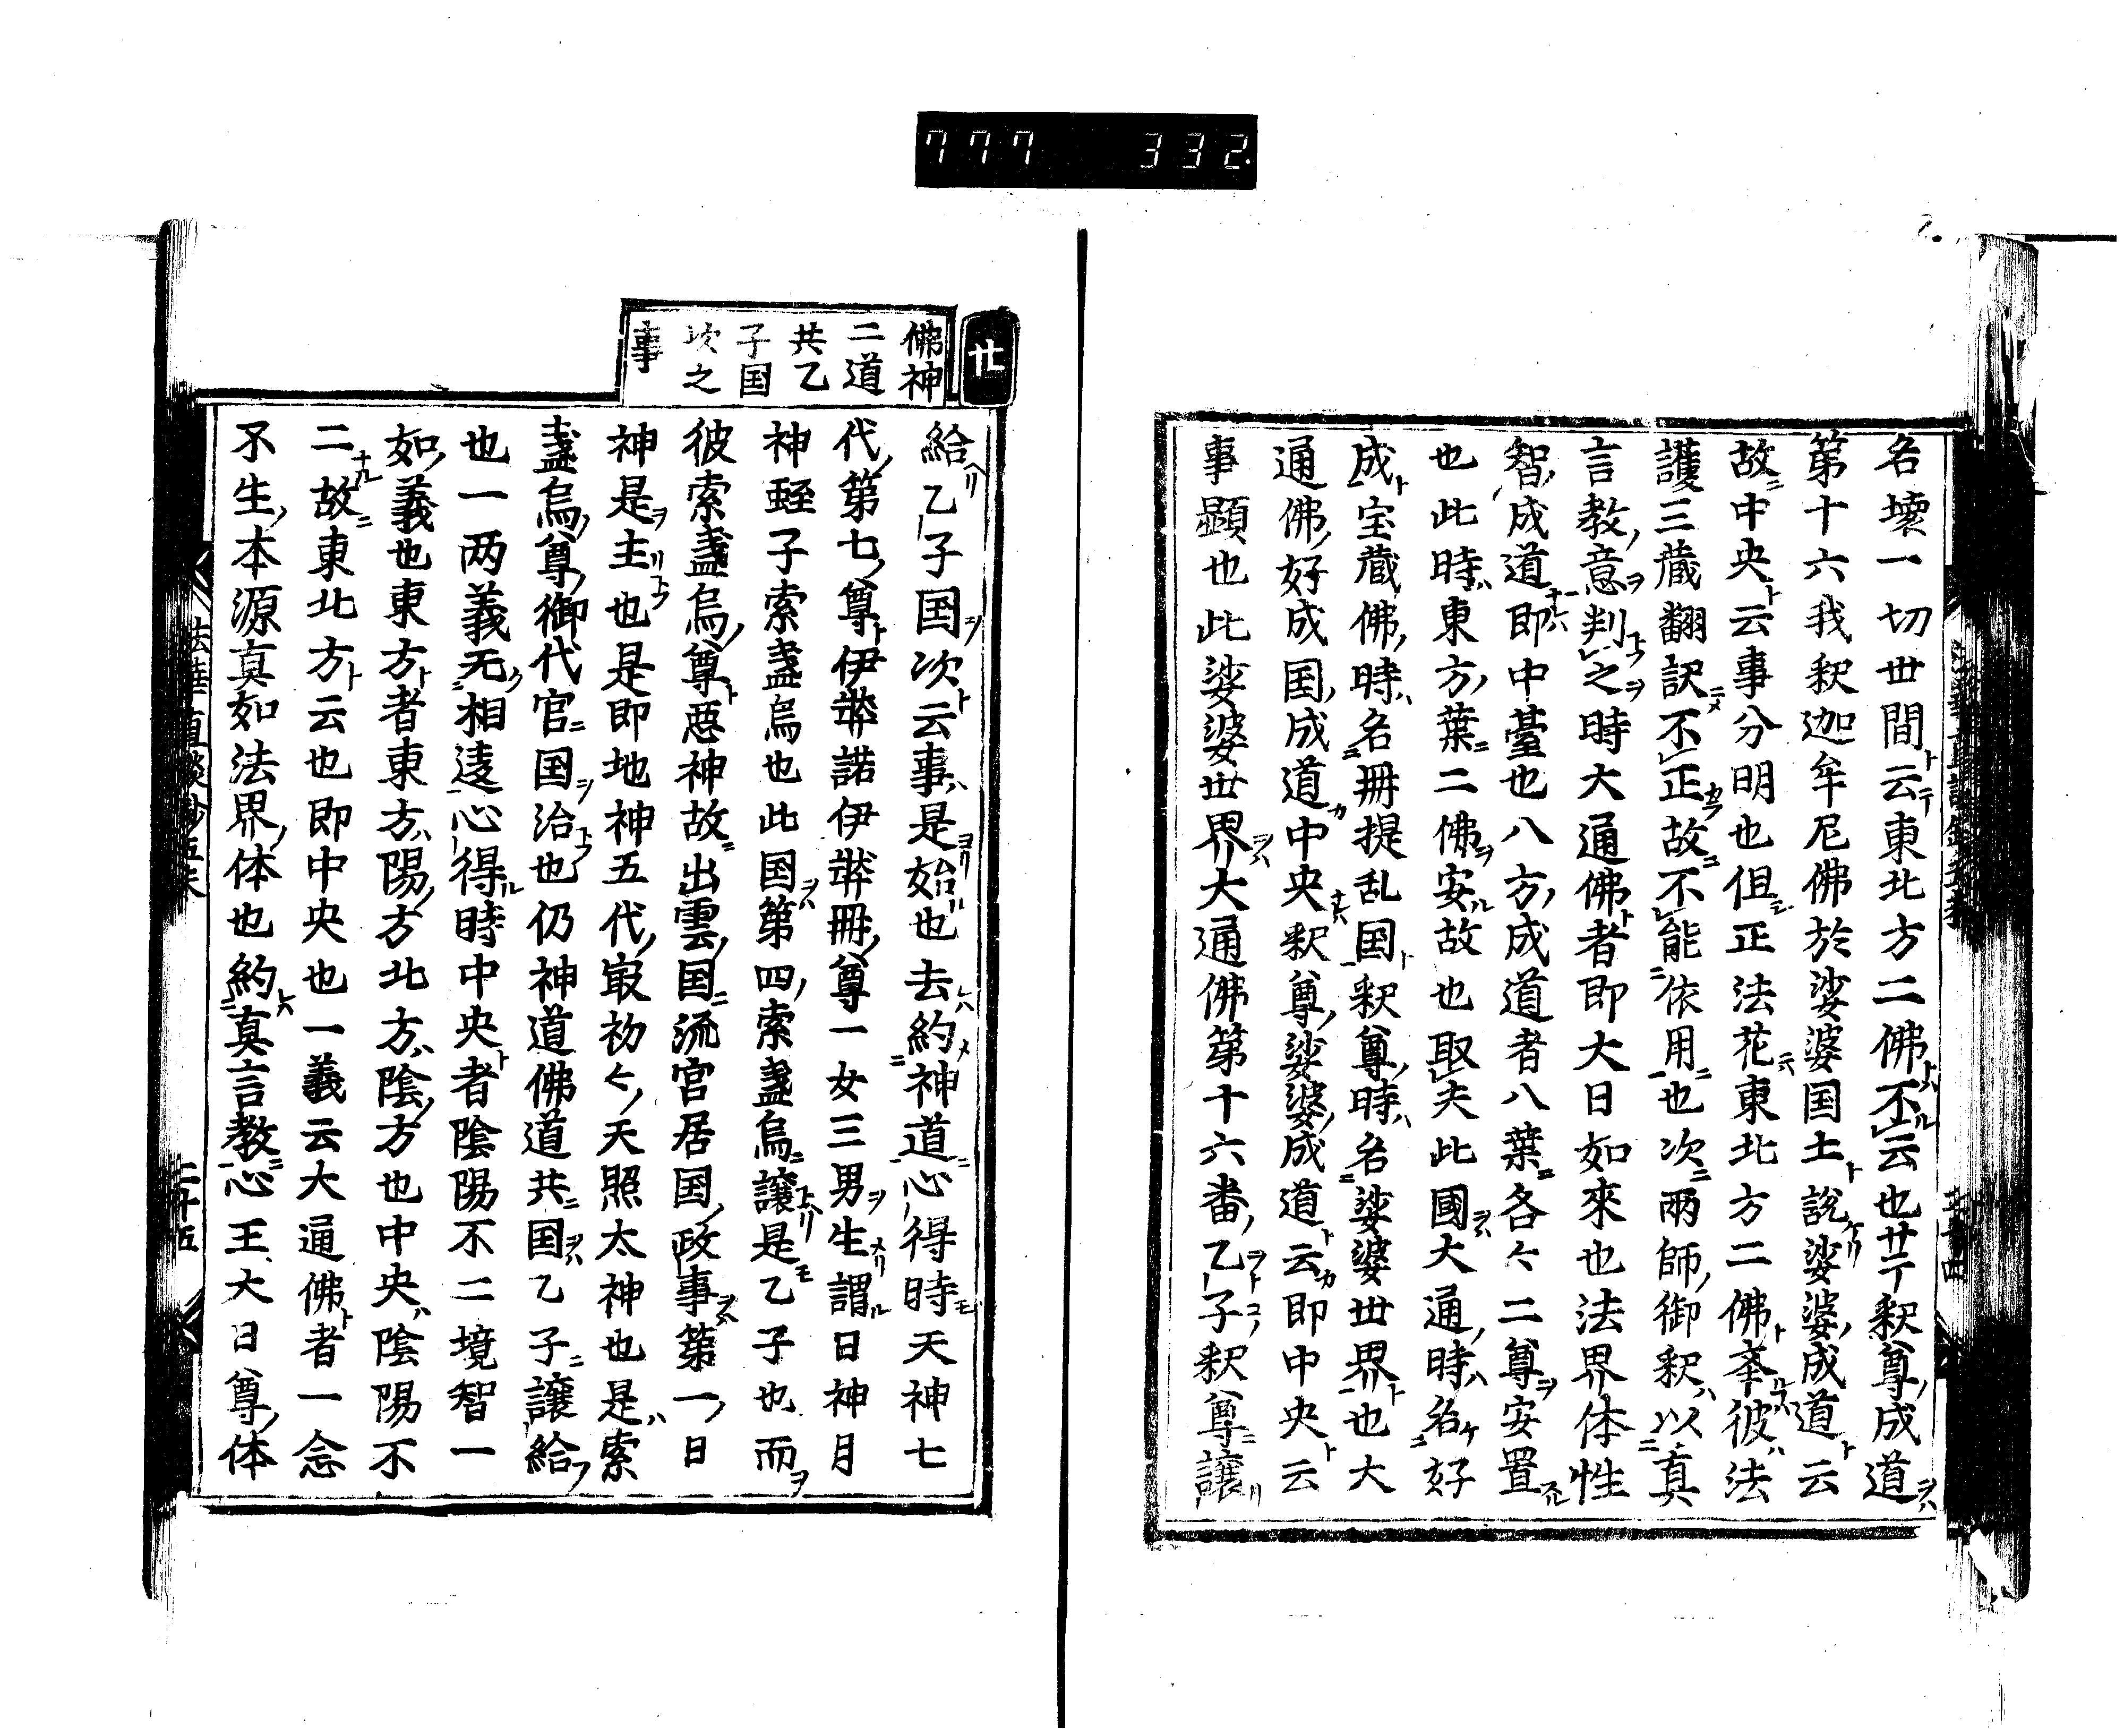 777 332.
名壞一切世間云東北方二佛不云也廿丁釈尊成道
第十六我釈迦牟尼佛於娑婆国土說娑婆成道云
故中央云事分明也但正法花東北方二佛挙彼法
護三蔵翻訳不正故不能依用也次兩師御釈以真
言教意判之時大通佛者即大日如來也法界体性
智成道即中臺也八方成道者八葉各々二尊安置
也此時東方葉二佛安故也取夫此國大通時名好
成宝蔵佛時名冊提乱国釈尊時名娑婆世界也大
通佛好成国成道中央釈尊娑婆成道云即中央云
事顕也此娑婆世界大通佛第十六番乙子釈尊讓
廿
佛神
二道
共乙
子国
次之
事
給乙子国次云事是始也去約神道心得時天神七
代第七尊伊弉諾伊弉冊尊一女三男生謂日神月
神蛭子索盞烏也此国第四索盞烏讓是乙子也而
彼索盞烏尊惡神故出雲国流官居国政事第一日
神是主也是即地神五代最初々天照太神也是索
盞烏尊御代官国治也仍神道佛道共国乙子讓給
也一两義无相違心得時中央者陰陽不二境智一
如義也東方者東方陽方北方陰方也中央陰陽不
二故東北方云也即中央也一義云大通佛者一念
不生本源真如法界体也約真言教心王大日尊体
法華直談鈔五末 二十五